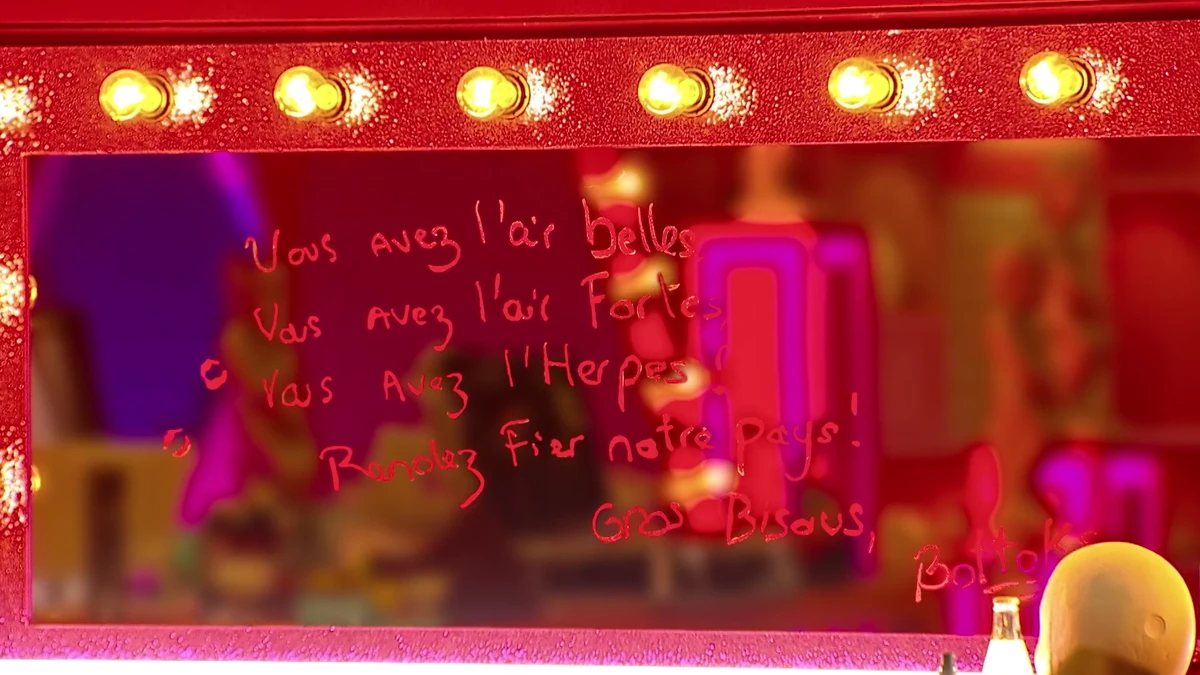 Vous avez l'air belles,
Vous avez l'air Fortes,
Vous Avez l'Herpes!
Rendez Fier notre pays!
Gros Bisous,